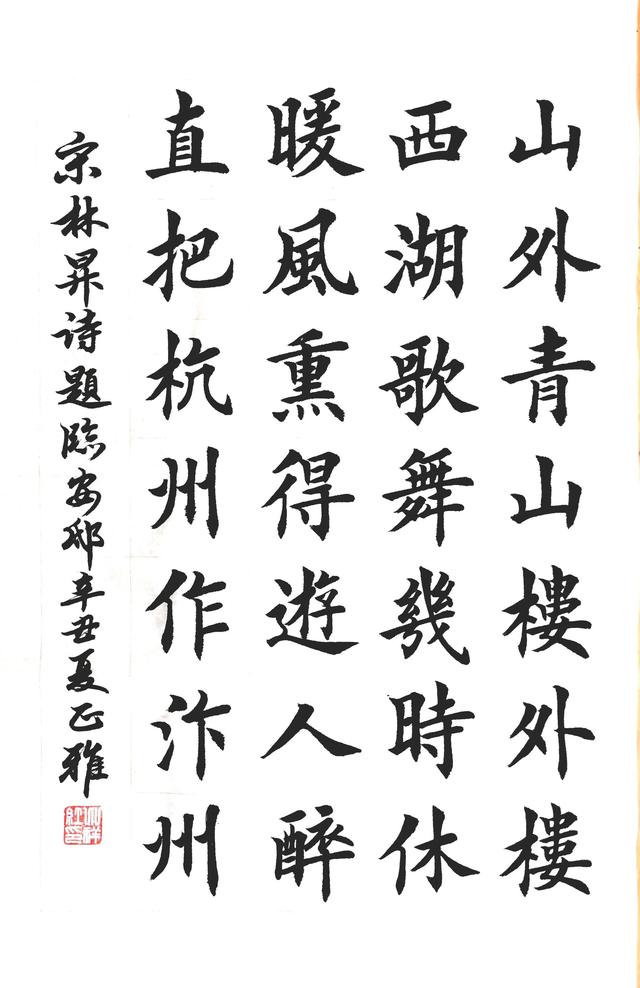 山外青山樓外樓
西湖歌舞幾時休
暖風熏得遊人醉
直把杭州作汴州
宋林昇诗題臨安邸辛丑夏正雅